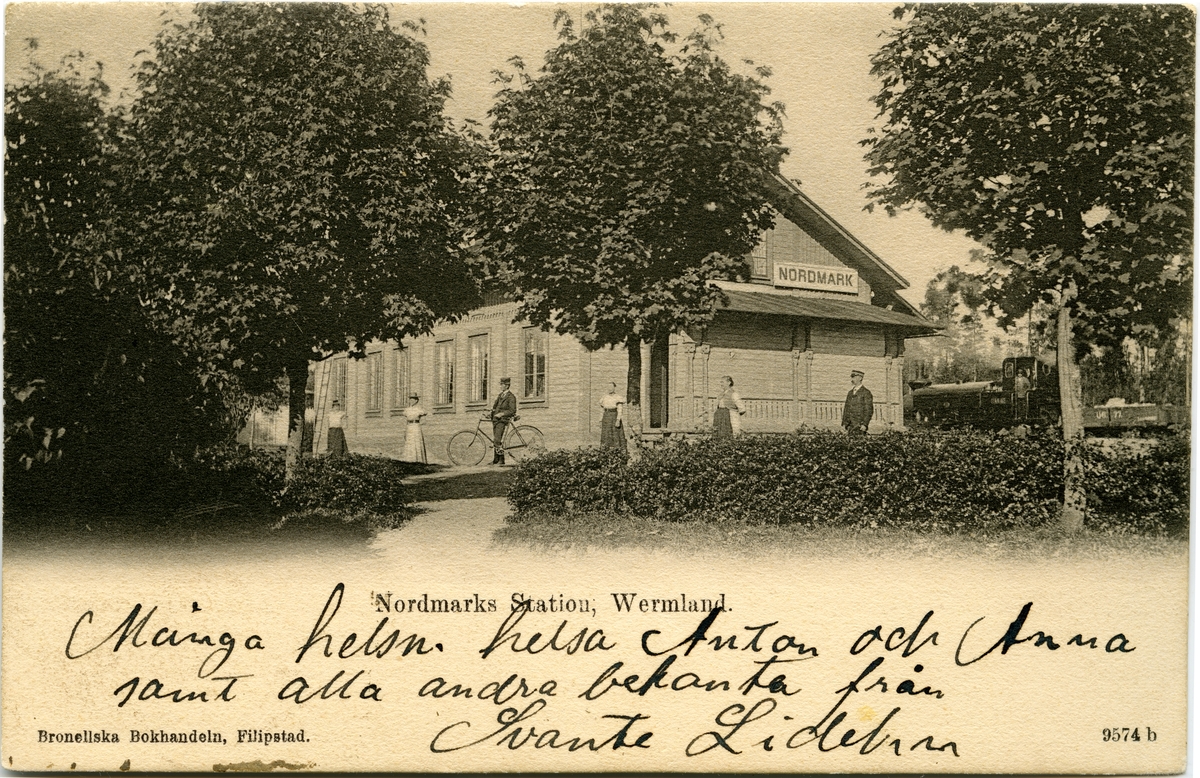 NORDMARK
Nordmarks Station, Wermland.
Många helsn. helsa Anton och Anna
samt alla andra bekanta från
Svante
Bronellska Bokhandeln, Filipstad.
9574 b